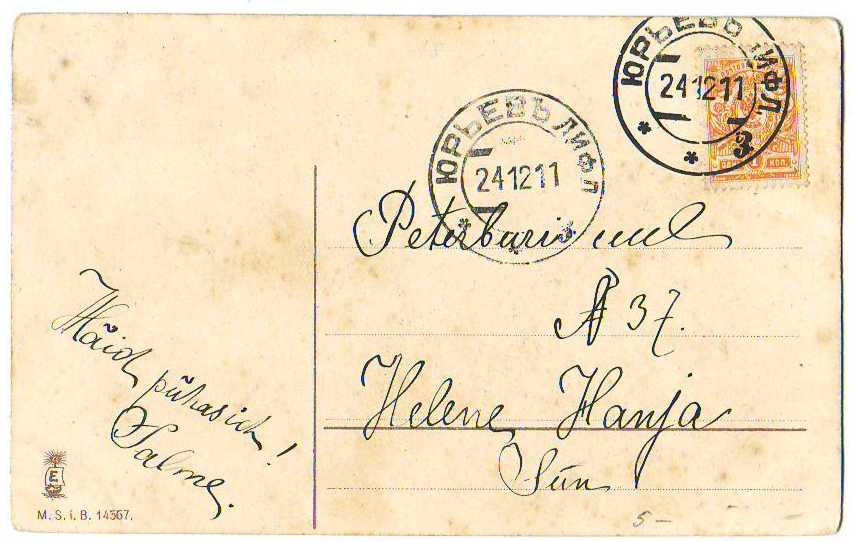 ЮРЬЕВЪ ЛИФЛ.
24 12 11
3
ЮРЬЕВЪ ЛИФЛ
24 12 11
3
КОП.
Peterburi uul
№ 37.
Helene Hanja
Siin
Häid
pühasid!
Salme.
E
M. S. i. B. 14567.
5-